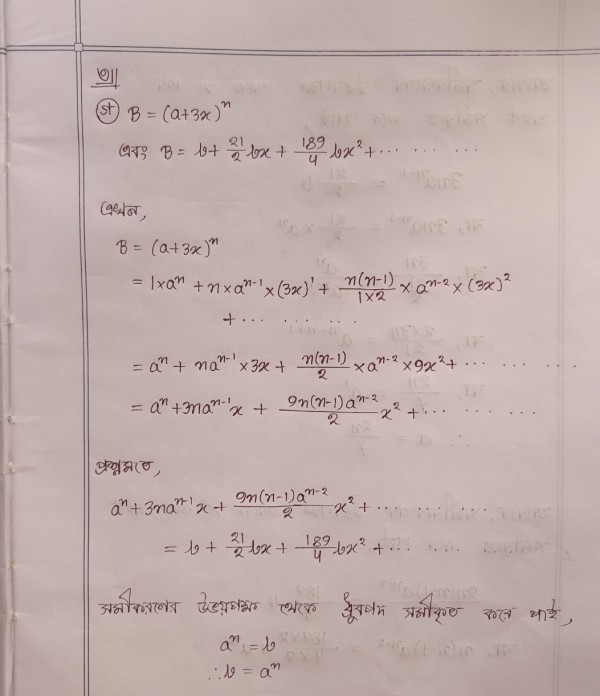 ৩।।
St B = (a+3x)^n
এবং B = b + 21/2 bx + 189/4 bx² + ··· ··· ···
এখন,
B = (a+3x)^n
= 1×a^n + n×a^(n-1)×(3x)^1 + n(n-1)/(1×2) × a^(n-2) × (3x)²
+ ··· ··· ··· ···
= a^n + na^(n-1)×3x + n(n-1)/2 × a^(n-2) × 9x² + ··· ··· ··· ···
= a^n + 3na^(n-1)x + 9n(n-1)a^(n-2)/2 x² + ··· ··· ··· ···
প্রশ্নমতে,
a^n + 3na^(n-1)x + 9n(n-1)a^(n-2)/2 x² + ··· ··· ··· ···
= b + 21/2 bx + 189/4 bx² + ··· ··· ···
সমীকরণের উভয়পক্ষ থেকে ধ্রুবপদ সমীকৃত করে পাই,
a^n = b
∴ b = a^n